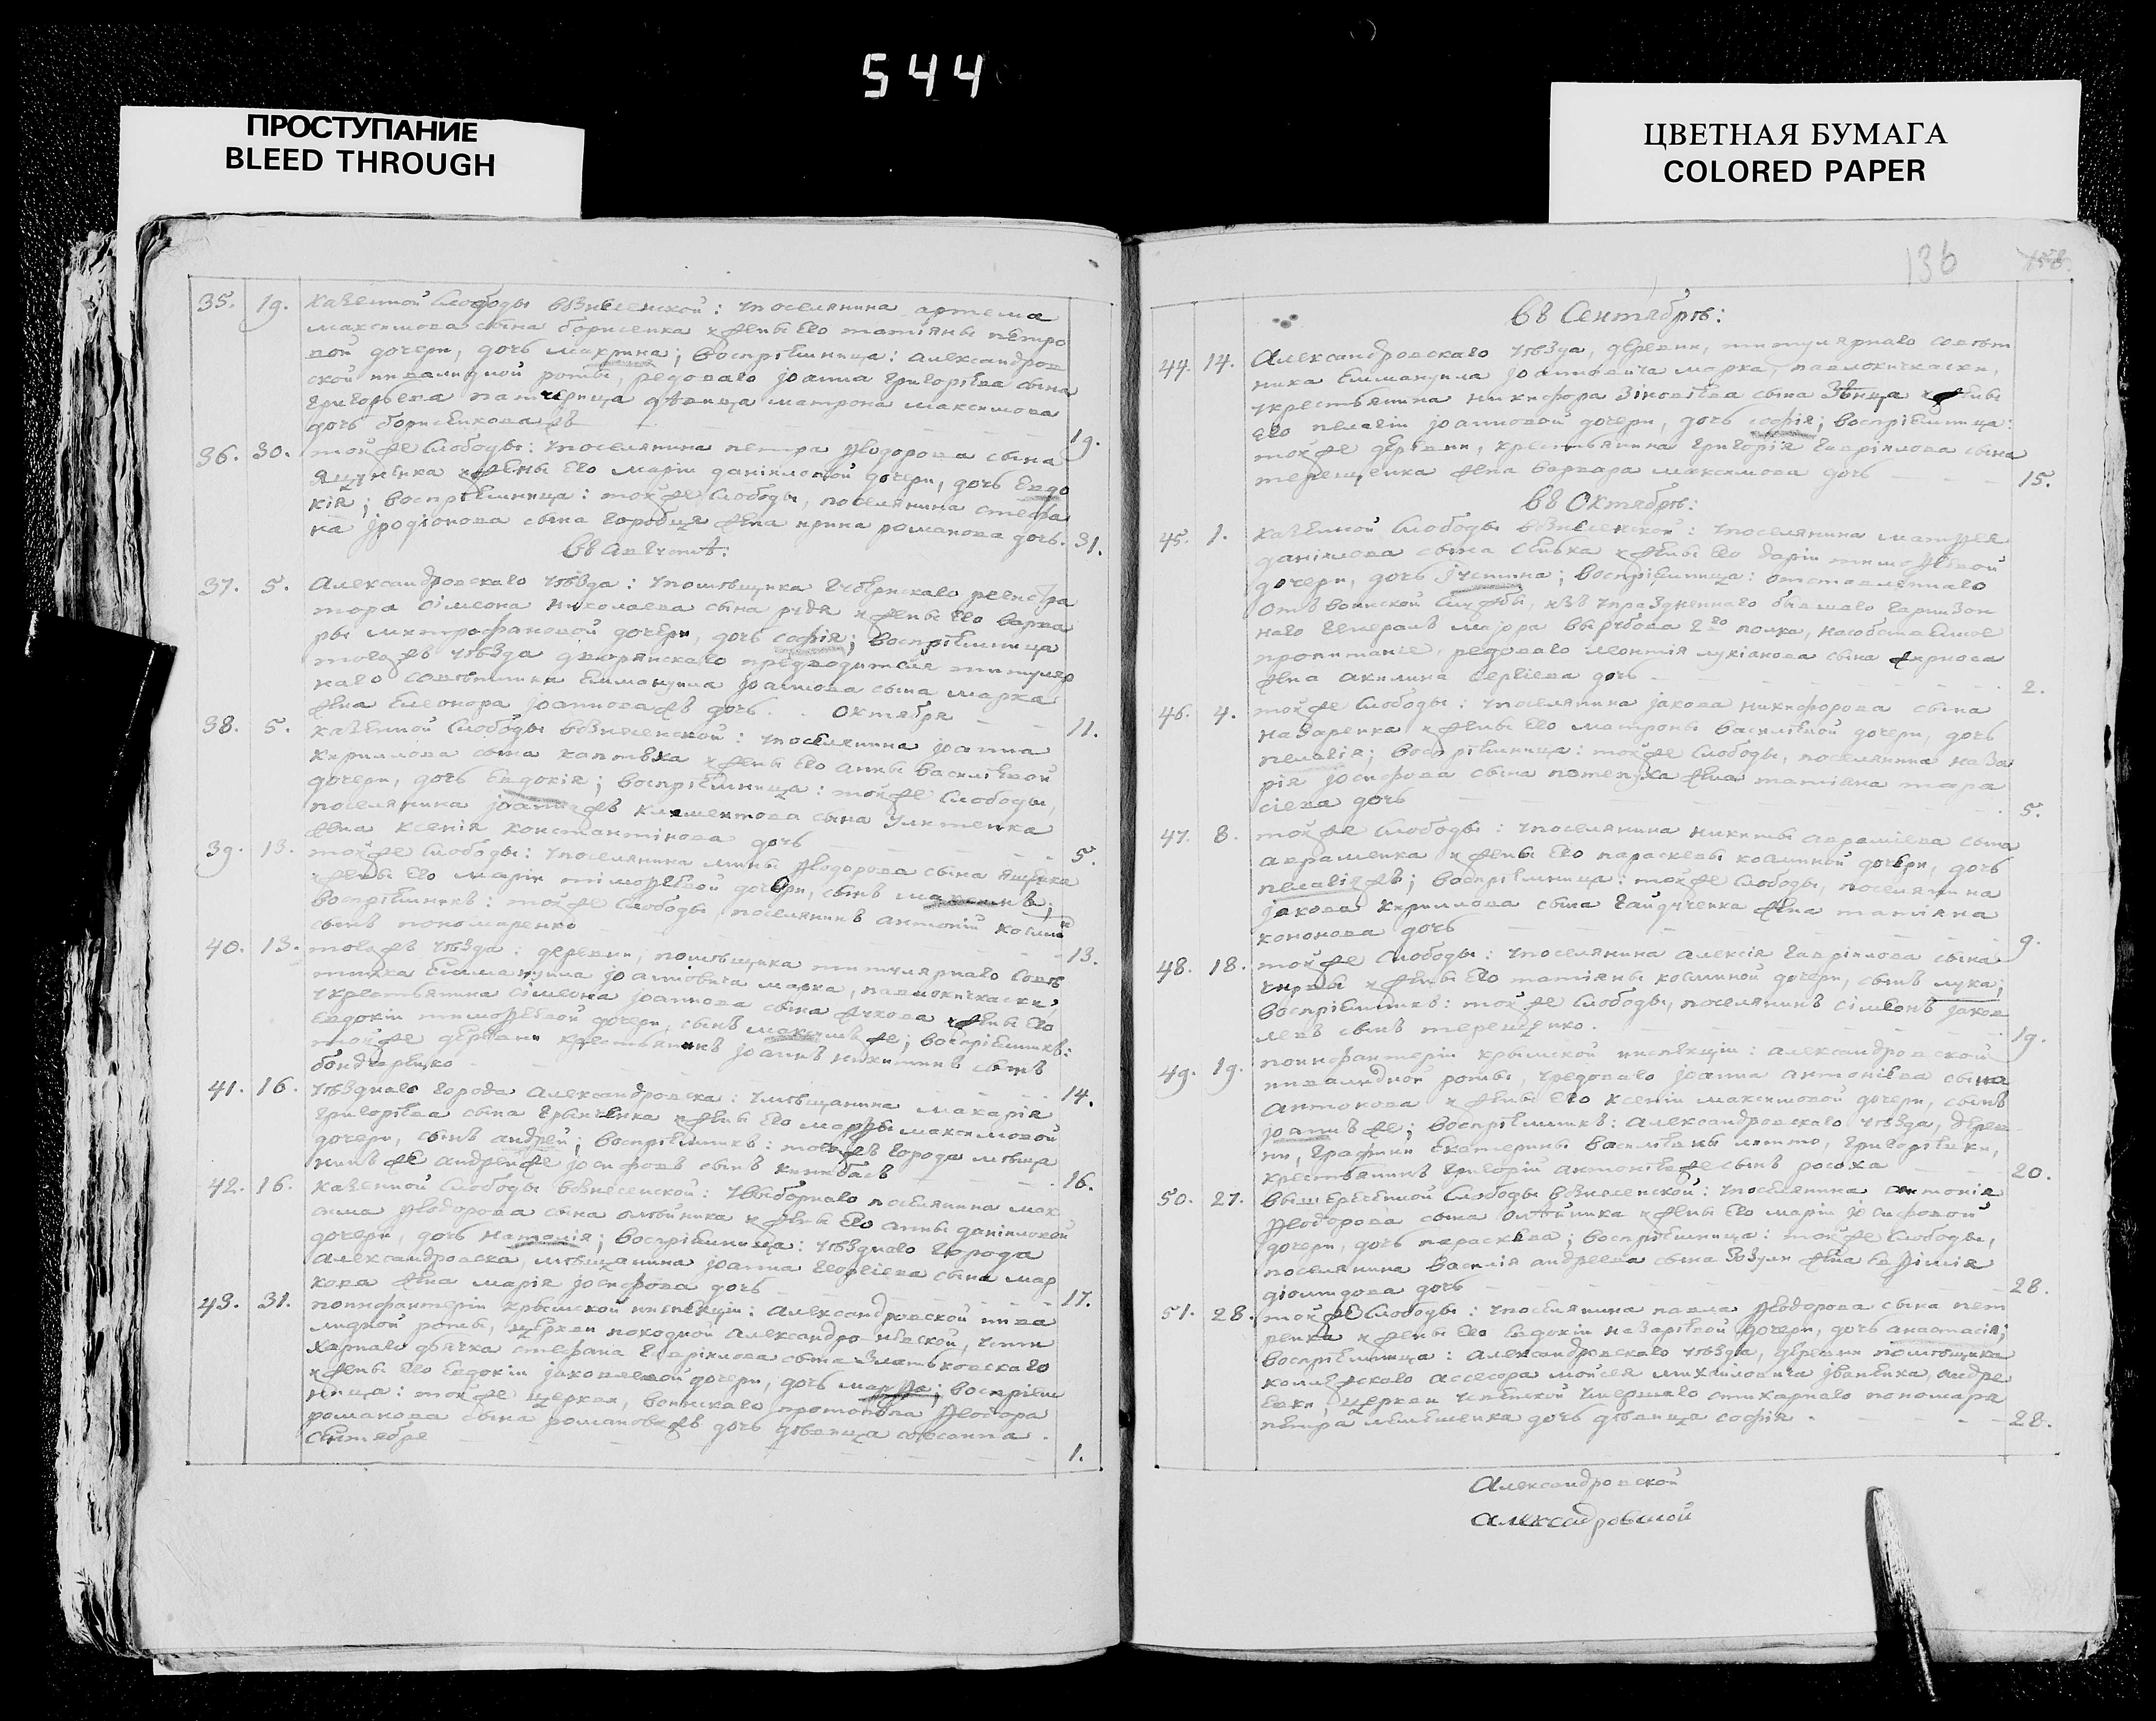 544
ПРОСТУПАНИЕ
BLEED THROUGH
ЦВЕТНАЯ БУМАГА
COLORED PAPER
35. 19. казенной Слободы вознесенской: упоселянина артема
максимова сына борисенка ижены Его татіяны петро
вой дочери, дочь макрина; воспріемница: александров
ской инвалидной роты, редоваго іоанна григоріева сына
григорьева падчерица дѣвица матрона максимова
дочь борисенковажъ 19.
36. 30. тойже Слободы: упоселянина петра Ѳеодорова сына
ижены Его маріи даніиловой дочери, дочь Евдо
кія; воспріемница: тойже Слободы, поселянина стефа
на іродіонова сына горобця жена ирина романова дочь. 31.
въ августѣ:
37. 5. Александровскаго уѣзда: упомѣщика губернскаго регистра
тора сімеона николаева сына рудя ижены Его варва
ры митрофановой дочери, дочь софія; воспріемница
тогожъ уѣзда дворянскаго предводителя титуляр
наго совѣтника Еммануила іоаннова сына марка
жена Елеонора іоанноважъ дочь. Октября 11.
38. 5. казенной Слободы вознесенской: упоселянина іоанна
кириллова сына ижены Его анны василіевой
дочери, дочь Евдокія; воспріемница: тойже Слободы,
поселянина климентова сына
жена ксенія константінова дочь 5.
39. 13. тойже Слободы: упоселянина мины Ѳеодорова сына
ижены Его маріи тімоѳеевой дочери, сынъ максимъ;
воспріемникъ: тойже Слободы, поселянинъ антоній косминъ
сынъ пономаренко 13.
40. 13. тогожъ уѣзда: деревни, помѣщика титулярнаго совѣт
ника Еммануила іоанновича марка, павлокичкаски,
укрестьянина сімеона іоаннова сына жукова ижены Его
Евдокіи тимоѳеевой дочери, сынъ максимъ же; воспріемникъ:
тойже деревни крестьянинъ іоаннъ никитинъ сынъ
бондаренко 14.
41. 16. уѣзднаго города Александровска: умѣщанина макарія
григоріева сына ижены Его марѳы максимовой
дочери, сынъ андрей; воспріемникъ: тогожъ города мѣща
нинъ же андрейже іосифовъ сынъ 16.
42. 16. казенной Слободы вознесенской: увыборнаго поселянина мак
сима Ѳеодорова сына олѣйника ижены Его анны даніиловой
дочери, дочь наталія; воспріемница: уѣзднаго города
александровска, мѣщанина іоанна георгіева сына мар
кова жена марія іосифова дочь 17.
43. 31. поинфантеріи крымской инспекціи: александровской инва
лидной роты, церкви походной александро невской, усти
харнаго дьячка стефана гавріилова сына
ижены Его Евдокіи іаковлевой дочери, дочь марѳа; воспріем
ница: тойже церкви, воинскаго протопопа Ѳеодора
романова сына романоважъ дочь дѣвица сосанна.
Сентября 1.
136
въ Сентябрѣ:
44. 14. Александровскаго уѣзда, деревни, титулярнаго совѣт
ника Еммануила іоанновича марка, павлокичкаски,
укрестьянина никифора зіновіева сына ижены
его пелагіи іоанновой дочери, дочь софія; воспріемница:
тойже деревни, крестьянина григорія гавріилова сына
терещенка жена варвара максимова дочь 15.
въ Октябрѣ:
45. 1. казенной Слободы вознесенской: упоселянина матѳея
даніилова сына ижены Его даріи тимоѳеевой
дочери, дочь іустина; воспріемница: отставленнаго
отъ воинской Службы, изъ упраздненнаго бывшаго гарнизон
наго генералъ маіора вырубова 2го полка, насобственное
пропитаніе, редоваго леонтія лукіанова сына
жена акилина сергіева дочь 2.
46. 4. тойже Слободы: упоселянина іакова никифорова сына
назаренка ижены Его матроны василіевой дочери, дочь
пелагія; воспріемница: тойже Слободы, поселянина наза
рія іосифова сына жена татіяна тара
сіева дочь 5.
47. 8. тойже Слободы: упоселянина никиты авраміева сына
авраменка ижены Его параскевы косминой дочери, дочь
пелагіяжъ; воспріемница: тойже Слободы, поселянина
іакова кириллова сына гайдученка жена татіяна
кононова дочь 9.
48. 18. тойже Слободы: упоселянина алексія гавріилова сына
ижены Его татіяны косминой дочери, сынъ лука;
воспріемникъ: тойже Слободы, поселянинъ сімеонъ іаков
левъ сынъ терещенко. 19.
49. 19. поинфантеріи крымской инспекціи: александровской
инвалидной роты, уредоваго іоанна антоніева сына
антонова ижены Его ксеніи максимовой дочери, сынъ
іоаннъ же; воспріемникъ: александровскаго уѣзда, дерев
ни, графини Екатерины василіевны литто, григорієвки,
крестьянинъ григорій антоніевже сынъ росоха 20.
50. 27. вышереченной Слободы вознесенской: упоселянина антонія
Ѳеодорова сына олѣйника ижены Его маріи іосифовой
дочери, дочь параскева; воспріемница: тойже Слободы,
поселянина василія андреева сына зозули жена Евфимія
діомидова дочь 28.
51. 28. тойже Слободы: упоселянина павла Ѳеодорова сына пет
ренка ижены Его Евдокіи назаріевой дочери, дочь анастасія;
воспріемница: александровскаго уѣзда, деревни помѣщика
коллежскаго ассесора мойсея михайловича іваненка, андре
евки, церкви успенской умершаго стихарнаго пономаря
петра дочь дѣвица софія. 28.
Александровской
Александровской